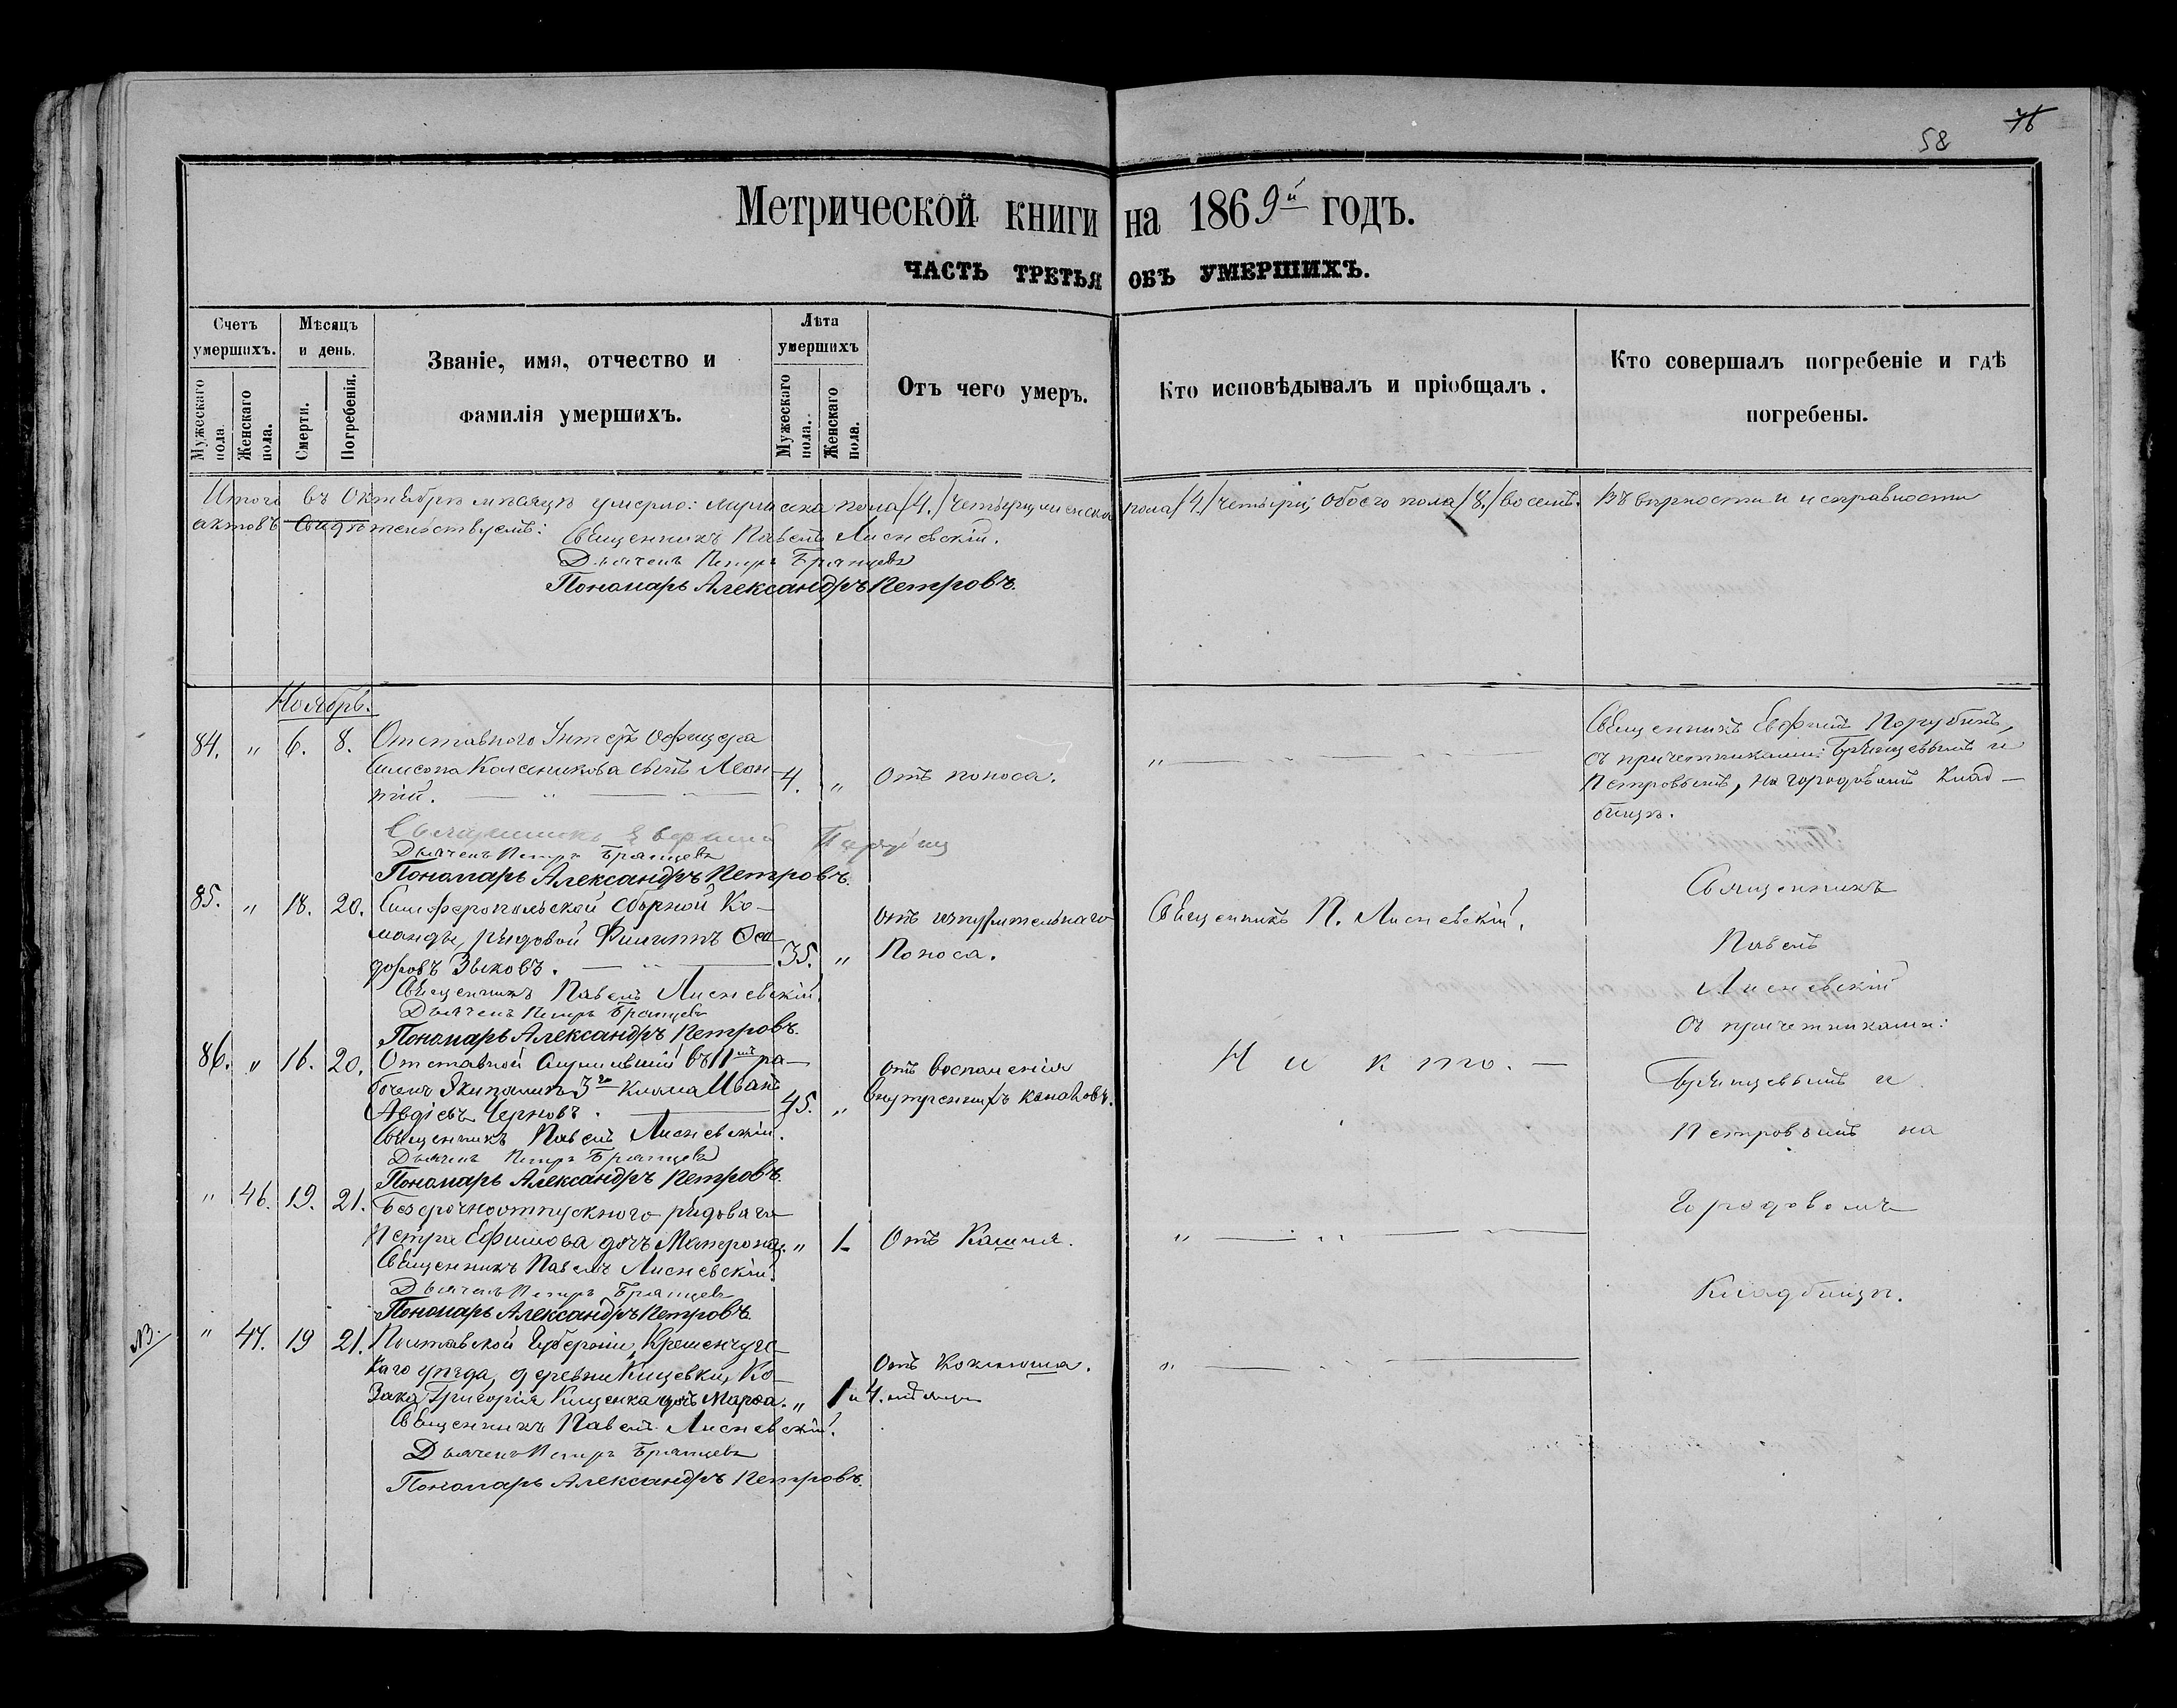 58 76
Метрической книги на 1869й годъ.
ЧАСТЬ ТРЕТЬЯ ОБЪ УМЕРШИХЪ.
Счетъ умершихъ.
Мужескаго пола.
Женскаго пола.
Мѣсяцъ и день.
Смерти.
Погребенія.
Званіе, имя, отчество и
фамилія умершихъ.
Лѣта умершихъ
Мужескаго пола.
Женскаго пола.
Отъ чего умеръ.
Кто исповѣдывалъ и пріобщалъ.
Кто совершалъ погребеніе и гдѣ
погребены.
Итого въ Октябрѣ мѣсяцѣ умерло: мужеска пола /4./ четыре, женска пола /4./ четыре, обоего пола /8./ восемь. Въ вѣрности и исправности
актовъ свидѣтельствуемъ:
Священникъ Павелъ Лисневскій.
Дьячекъ Петръ Бранцевъ
Пономарь Александръ Петровъ.
Ноябрь.
84. " 6. 8. Отставного Унтеръ Офицера
Симеона Колесникова сынъ Леон-
тій. 4. " Отъ поноса. "
Священникъ Евфимій Порубинъ,
съ причетниками: Бранцевымъ и
Петровымъ, на городовомъ Клад-
бищѣ.
Священникъ Евфимій
Дьячекъ Петръ Бранцевъ
Пономарь Александръ Петровъ.
85. " 18. 20. Симферопольской сборной Ко-
манды, рядовой Филиппъ Фео-
доровъ Зыковъ. 35. "
отъ изнурительнаго
Поноса.
Священникъ П. Лисневскій.
Священникъ Павелъ Лисневскій.
Дьячекъ Петръ Бранцевъ
Пономарь Александръ Петровъ.
86. " 16. 20. Отставной служившій въ 11мъ ра-
бочемъ Экипажѣ 3го Класса Иванъ
Авдіевъ Черновъ. 45. "
отъ воспаленія
внутреннихъ каналовъ.
Никто.
Священникъ Павелъ Лисневскій.
Дьячекъ Петръ Бранцевъ
Пономарь Александръ Петровъ.
" 46. 19. 21. Безсрочноотпускного рядоваго
Петра Ефимова дочь Матрона. " 1. Отъ Кашля. "
Священникъ Павелъ Лисневскій.
Дьячекъ Петръ Бранцевъ
Пономарь Александръ Петровъ.
NB. " 47. 19 21. Полтавской Губерніи, Кременчугс-
каго уѣзда, деревни Кищевки, Ко-
зака Григорія Кищенка дочь Марѳа. " 1 и 4. мѣсяца
Отъ Коклюша. "
Священникъ Павелъ Лисневскій.
Дьячекъ Петръ Бранцевъ
Пономарь Александръ Петровъ.
Священникъ
Павелъ
Лисневскій
съ причетниками:
Бранцевымъ и
Петровымъ на
Городовомъ
Кладбищѣ.